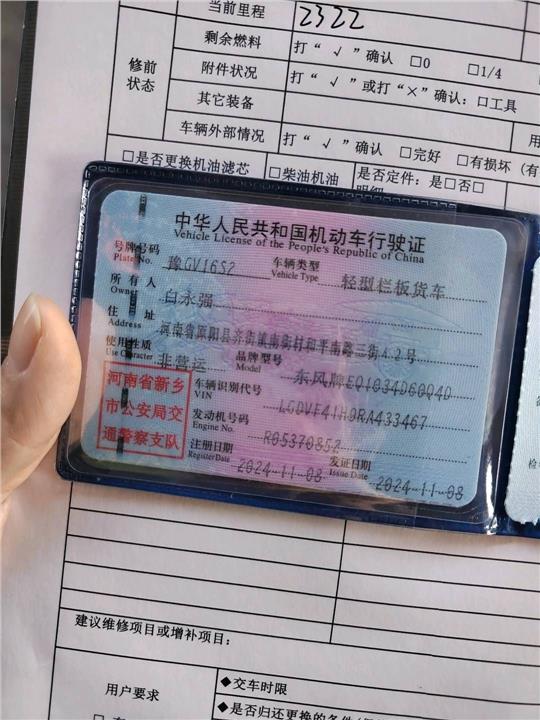 当前里程 2322
剩余燃料 打“√”确认 □0 □1/4
修前状态
附件状况 打“√”或打“×”确认：□工具
其它装备
车辆外部情况 打“√”确认 □完好 □有损坏（有
□是否更换机油滤芯 □柴油机油 是否定件：是□否□
明细
中华人民共和国机动车行驶证
Vehicle License of the People's Republic of China
号牌号码 豫GV1652 车辆类型 轻型栏板货车
Plate No. Vehicle Type
所有人 白永强
Owner
住址 河南省原阳县齐街镇南街村和平南路三街42号
Address
使用性质 非营运 品牌型号 东风牌EQ1034D60Q4D
Use Character Model
河南省新乡
市公安局交
通警察支队
车辆识别代号 LGDVF41H0RA433467
VIN
发动机号码 R05370852
Engine No.
注册日期 2024-11-08 发证日期 2024-11-08
Register Date Issue Date
建议维修项目或增补项目：
用户要求
◆交车时限
◆是否归还更换的备件